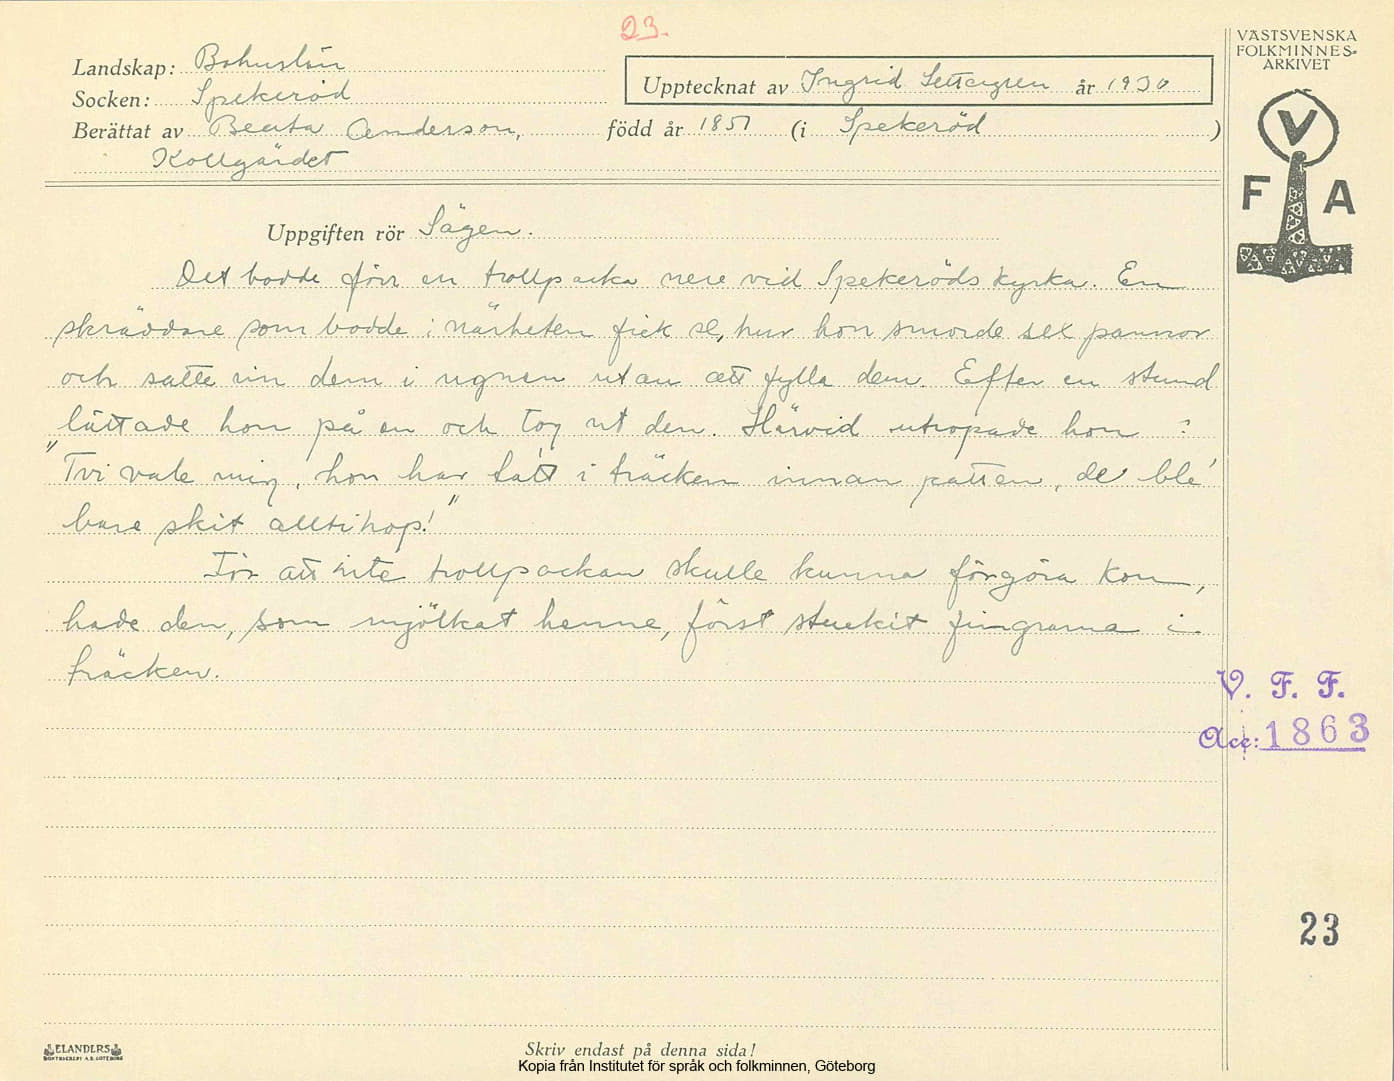 23.
VÄSTSVENSKA
FOLKMINNES-
ARKIVET
Landskap: Bohuslän
Upptecknat av Ingrid Settergren år 1930
Socken: Spekeröd
Berättat av Beata Anderson, född år 1851 (i Spekeröd )
Kollgärdet
V
F A
Uppgiften rör Sägen.
Det bodde förr en trollpacka nere vid Spekeröds kyrka. En
skräddare som bodde i närheten fick se, hur hon smorde sex pannor
och satte in dem i ugnen utan att fylla dem. Efter en stund
lättade hon på en och tog ut den. Härvid utropade hon :
"Tvi vale mig, hon har tatt i träcken innan patten, de ble'
bare skit alltihop!"
För att inte trollpackan skulle kunna förgöra kon,
hade den, som mjölkat henne, först stuckit fingrarna i
träcken.
V. F. F.
Acc: 1863
23
ELANDERS
BOKTRYCKERI A.B. GÖTEBORG
Skriv endast på denna sida!
Kopia från Institutet för språk och folkminnen, Göteborg